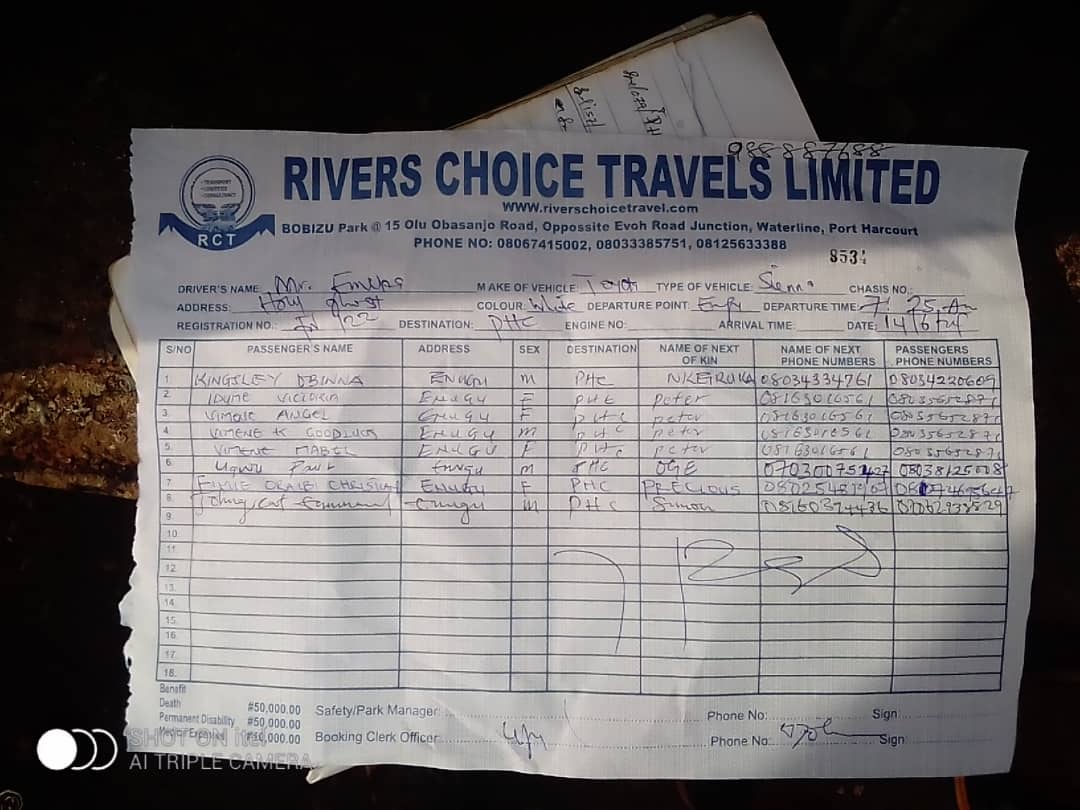 988887688
RIVERS CHOICE TRAVELS LIMITED
TRANSPORT
LOGISTICS
CONSULTANCY
RCT
WWW.riverschoicetravel.com
BOBIZU Park @ 15 Olu Obasanjo Road, Oppossite Evoh Road Junction, Waterline, Port Harcourt
PHONE NO: 08067415002, 08033385751, 08125633388
8534
DRIVER'S NAME: Mr. Emeka MAKE OF VEHICLE: Toyota TYPE OF VEHICLE: Sienna CHASIS NO.:
ADDRESS: Holy Ghost COLOUR: White DEPARTURE POINT: DEPARTURE TIME: 7:25.Am
REGISTRATION NO.: DESTINATION: PHC ENGINE NO: ARRIVAL TIME: DATE: 14/6/24
S/NO PASSENGER'S NAME ADDRESS SEX DESTINATION NAME OF NEXT OF KIN NAME OF NEXT PHONE NUMBERS PASSENGERS PHONE NUMBERS
1. KINGSLEY OBINNA ENUGU M PHC NKEIRUKA 08034334761 08034220609
2. IDUME VICTORIA ENUGU F PHC Peter 08163016561 08035652871
3. VIMENE ANGEL ENUGU F PHC peter 08163016561 08035652871
4. VIMENE K GOODLUCK ENUGU M PHC peter 08163016561 08035652871
5. VIMENE MABEL ENUGU F PHC peter 08163016561 08035652871
6. Ugwu Paul Enugu M PHC OGE 08038125008
7. CHRISTIAN ENUGU F PHC PRECIOUS
8. Emmanuel Enugu M PHC Simon 08160374436
9.
10.
11.
12.
13.
14.
15.
16.
17.
18.
Benefit
Death #50,000.00 Safety/Park Manager: Phone No: Sign:
Permanent Disability #50,000.00
Medical Expenses #10,000.00 Booking Clerk Officer: Phone No: Sign:
SHOT ON itel
AI TRIPLE CAMERA